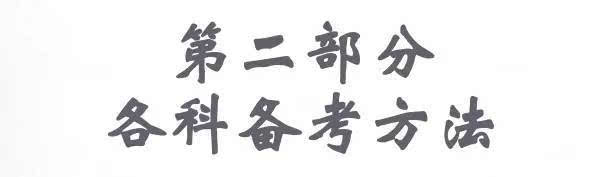 第二部分
各科备考方法